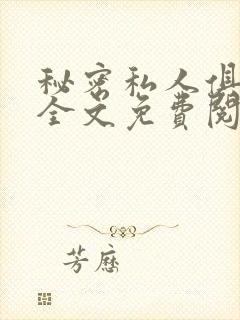 秘密私人俱
全文免費閱
芳歷